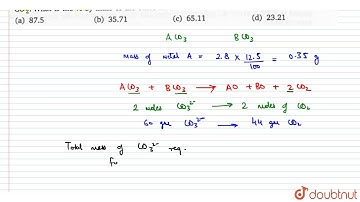 (a) 87.5 (b) 35.71 (c) 65.11 (d) 23.21
A CO3 B CO3
mass of metal A = 2.8 × 12.5/100 = 0.35 g
A CO3 + B CO3 → AO + BO + 2 CO2
2 moles CO3²⁻ → 2 moles of CO2
60 gm CO3²⁻ → 44 gm CO2
Total mass of CO3²⁻ req.
fo
doubtnut